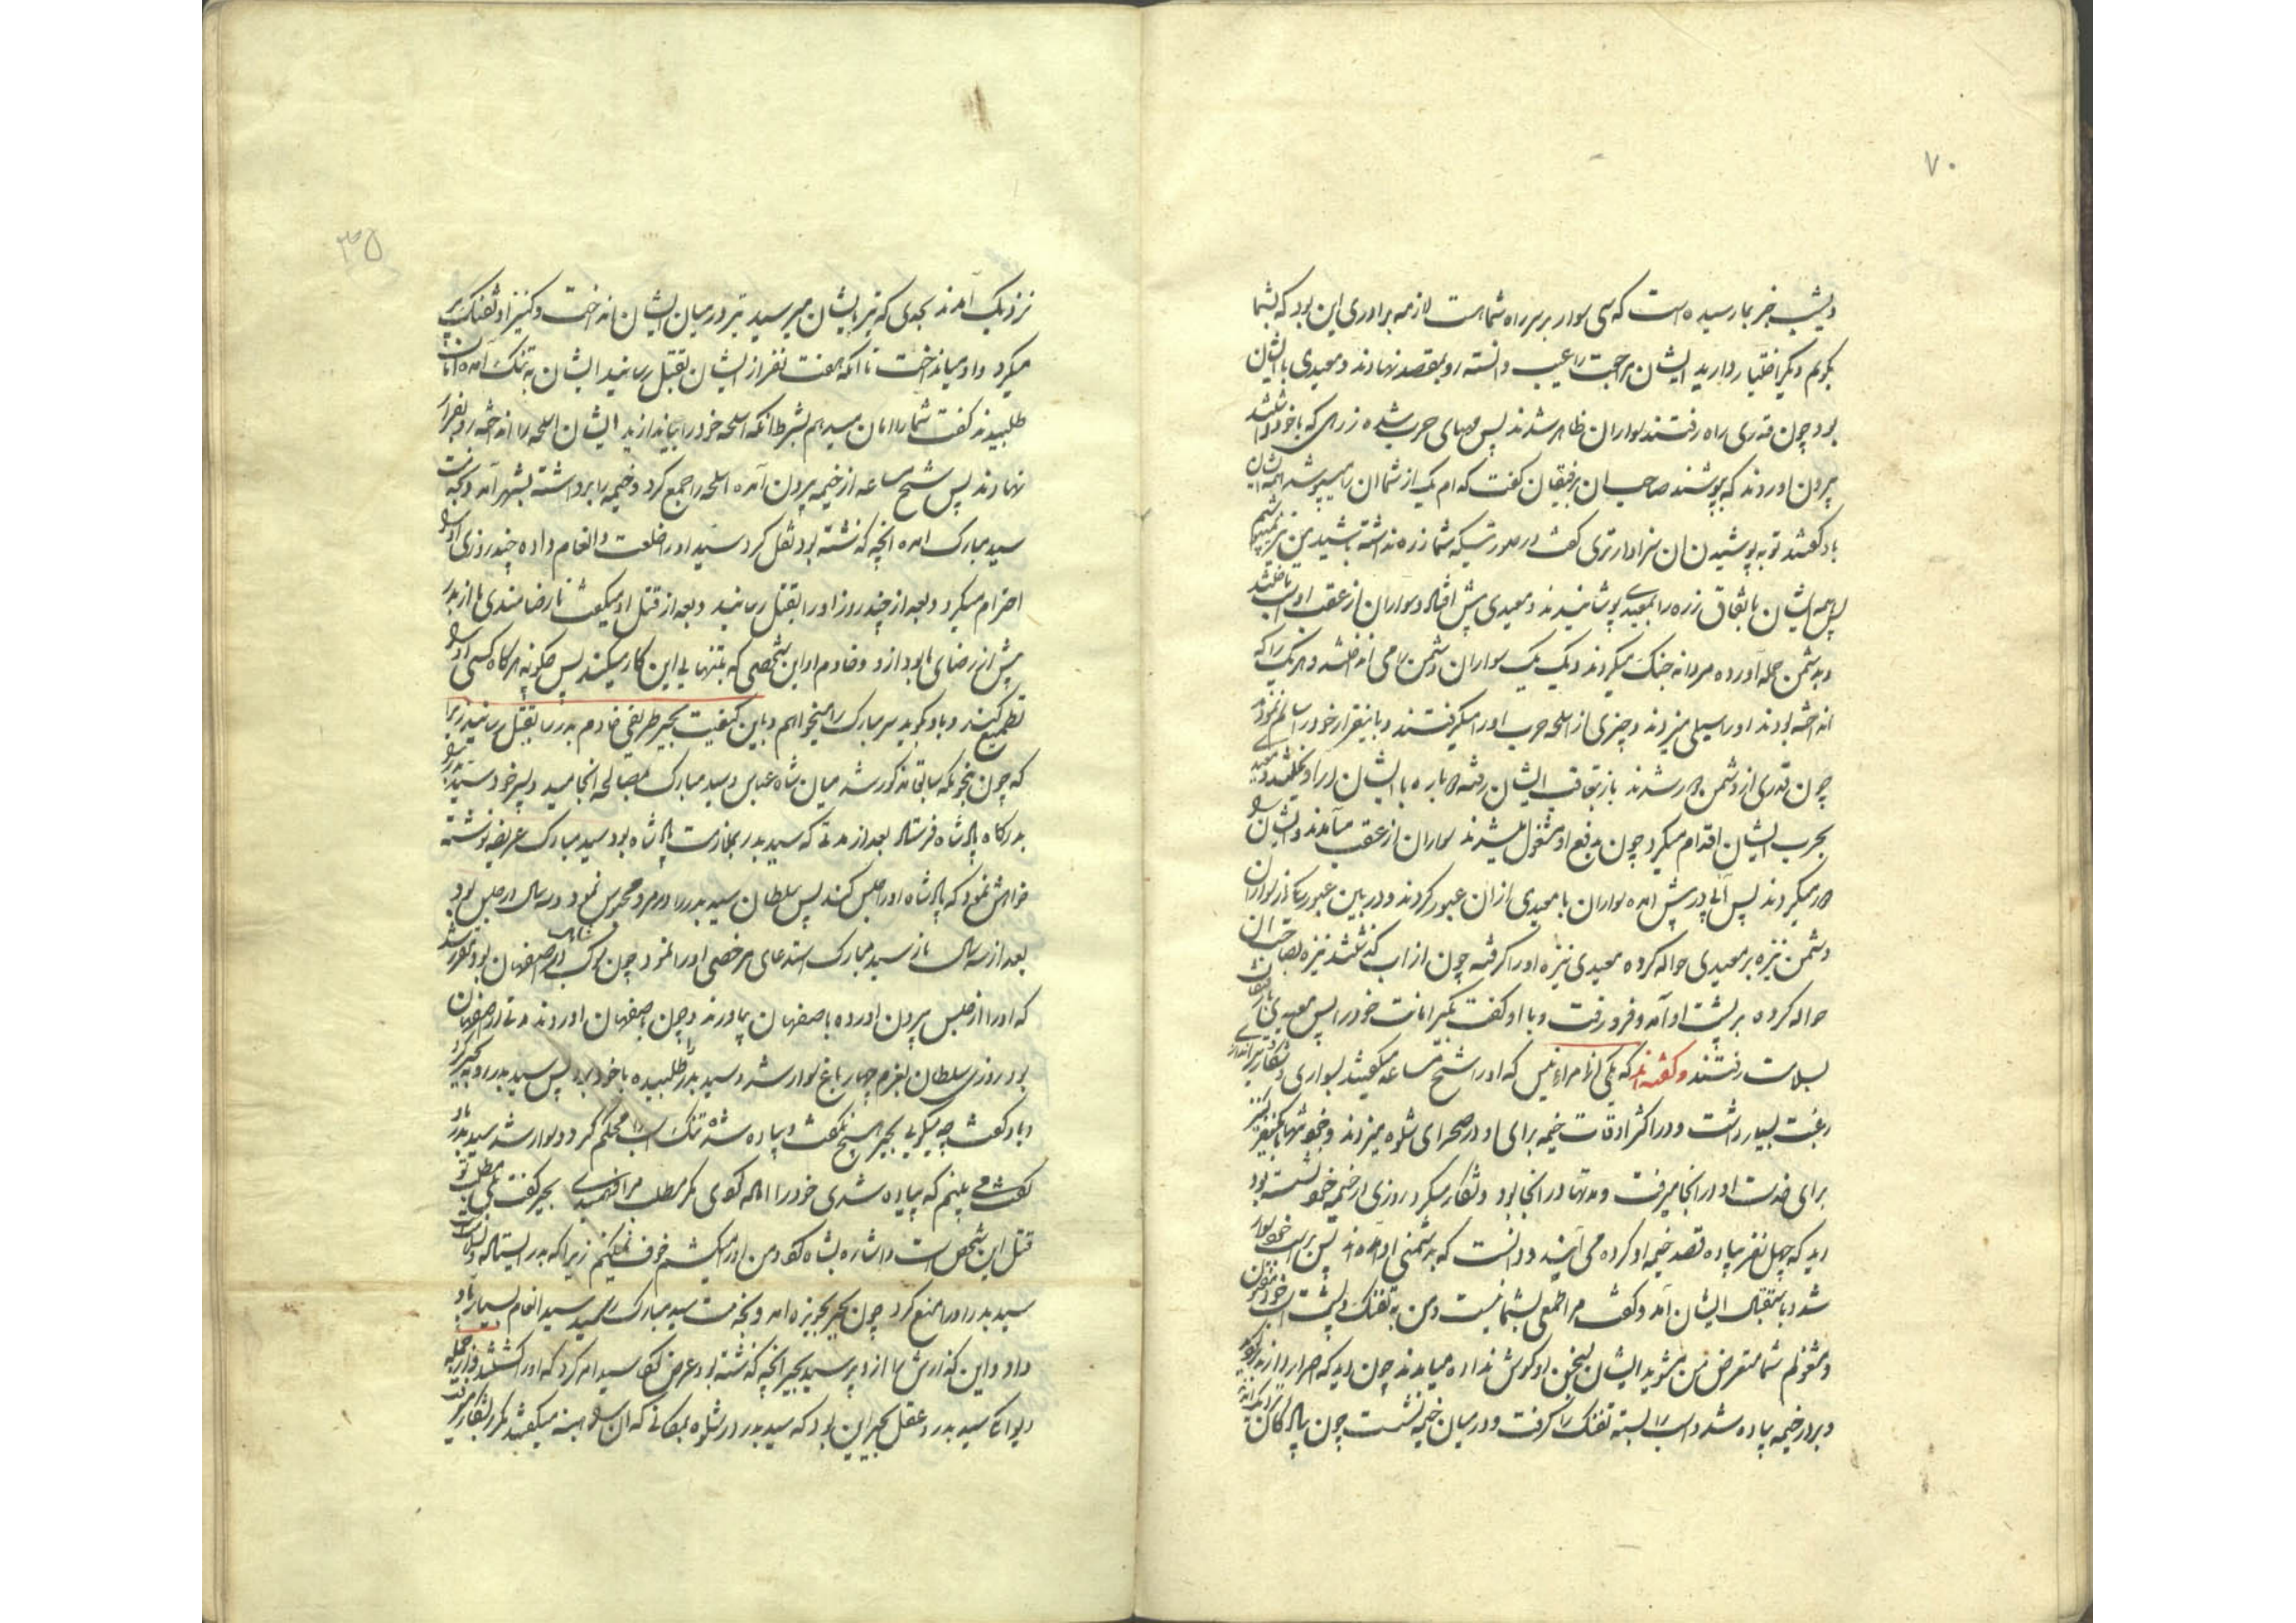 ۷۰
دیشب خبر بما رسیده است که سی سوار بر سر راه شماست لازمه برادری این بود که بشما
بگویم دیگر اختیار دارید ایشان مراجعت را عیب دانسته رو بمقصد نهادند و معیدی با ایشان
بود چون قدری راه رفتند سواران ظاهر شدند پس مهیای حرب شده زرهی که با خود داشتند
بیرون اوردند که بپوشند صاحب ان برفیقان گفت که ام یک از شما ان را میپوشد همه ایشان
باو گفتند تو به پوشیدن ان سزاوارتری گفت در صورتیکه شما زره نداشته باشید من نیز نمیپوشم
پس همه ایشان باتفاق زره را بمعیدی پوشانیدند و معیدی پیش افتاد و سواران از عقب او
و بدشمن حمله آورده مردانه جنگ میکردند و یک یک سواران دشمن را می انداختند و هر یک را که
انداخته بودند او را سیلی میزدند و چیزی از اسلحه حرب او را میگرفتند و باینقرار خود را سالم نمودند
چون قدری از دشمن دور شدند باز بتعاقب ایشان رفته دوباره با ایشان در اویختند و معیدی
بحرب ایشان اقدام میکرد چون بدفع او مشغول میشدند سواران از عقب میآمدند و ایشان را
دور میکردند پس آبی در پیش امده سواران با معیدی از ان عبور کردند و در بین عبور یکی از سواران
دشمن نیزه بر معیدی حواله کرده معیدی نیزه او را گرفته چون از اب گذشتند نیزه بصاحب ان
حواله کرده بر پشت او آمد و فرو رفت و با او گفت بگیر امانت خود را پس معیدی با رفیقان
بسلامت رفتند و گفته اند که یکی از امراء نیس که او را شیخ مساعد میگفتند بسواری و شکار و تیراندازی
رغبت بسیار داشت و در اکثر اوقات خیمه برای او در صحرای شاوه میزدند و خود تنها با یکنفر کنیز
برای خدمت او در انجا میرفت و مدتها در انجا بود و شکار میکرد روزی در خیمه خود نشسته بود
دید که چهل نفر پیاده قصد خیمه او کرده می آیند و دانست که بدشمنی او آمده اند پس بر اسب خود سوار
شد و باستقبال ایشان آمد و گفت مرا طمعی بشما نیست و من به تفنگ و پشت اسب خود مشعوف
و مشغولم شما متعرض من مشوید ایشان بسخن او گوش نداده میامدند چون دید که اصرار دارند برگردید
و بر در خیمه پیاده شد و اسب را بسته تفنگ را گرفت و در میان خیمه نشست چون پیادگان
۳۵
نزدیک آمدند بحدی که تیر بایشان میرسید تیر در میان ایشان انداخت و کنیز او تفنگ پر
میکرد و او میانداخت تا انکه هفت نفر از ایشان بقتل رسانید ایشان به تنگ آمده امان
طلبیدند گفت شما را امان میدهم بشرط انکه اسلحه خود را بیاندازید ایشان اسلحه را انداخته رو بفرار
نهادند پس شیخ مساعد از خیمه بیرون آمده اسلحه را جمع کرد و خیمه را برداشته بشهر آمد و بخدمت
سید مبارک امده انچه گذشته بود نقل کرد سید او را خلعت و انعام داده چند روزی او را
احترام میکرد و بعد از چند روز او را بقتل رسانید و بعد از قتل او میگفت نارضامندی ما از بدر
بیش از رضای ما بود ازو و خادم او این شخصی که بتنهایی این کار میکند پس چگونه هرگاه کسی او را
تطمیع کند و باو گوید سر مبارک را میخواهم و باین کیفیت بجیر طریفی خادم بدر را بقتل رسانید زیرا
که چون بنحویکه سابق مذکور شد میان شاه عباس و سید مبارک بمصالحه انجامید و پسر خود سید بدر را
بدرگاه پادشاه فرستاد بعد از مدتی که سید بدر بملازمت پادشاه بود سید مبارک عریضه نوشته
خواهش نمود که پادشاه او را حبس کند پس سلطان سید بدر را در مرو محبوس نمود و سه سال در حبس بود
بعد از سه سال باز سید مبارک استدعای مرخصی او را نمود چون موکب شاهی در اصفهان بود مقرر شد
که او را از حبس بیرون اورده باصفهان بیاورند و چون باصفهان اوردند مدتی در اصفهان
بود روزی سلطان بعزم چهار باغ سوار شد و سید بدر را طلبیده با خود برد پس سید بدر رو به بجیر کرد
و باو گفت چه میگویی بجیر هیچ نگفت و پیاده شده تنگ اسب را محکم کرد و سوار شد سید بدر باو
گفت می بینم که پیاده شدی خود را اماده کردی مگر مطلب مرا فهمیدی بجیر گفت بلی مطلب تو
قتل این شخص است و اشاره بشاه کرد و من او را میکشم خوف نمیکنم زیرا که بدر ایستاده و
سید بدر او را منع کرد چون بجیر بحویزه امد و بخدمت سید مبارک رسید سید انعام بسیار باو
داد و این گذارش را ازو پرسید بجیر انچه گذشته بود عرض کرد سید امر کرد که او را کشتند و از جمله
دیوانگی سید بدر و عقل بجیر این بود که سید بدر در شاوه بمکانی که ان را هبنه میگفتند مکرر بشکار میرفت